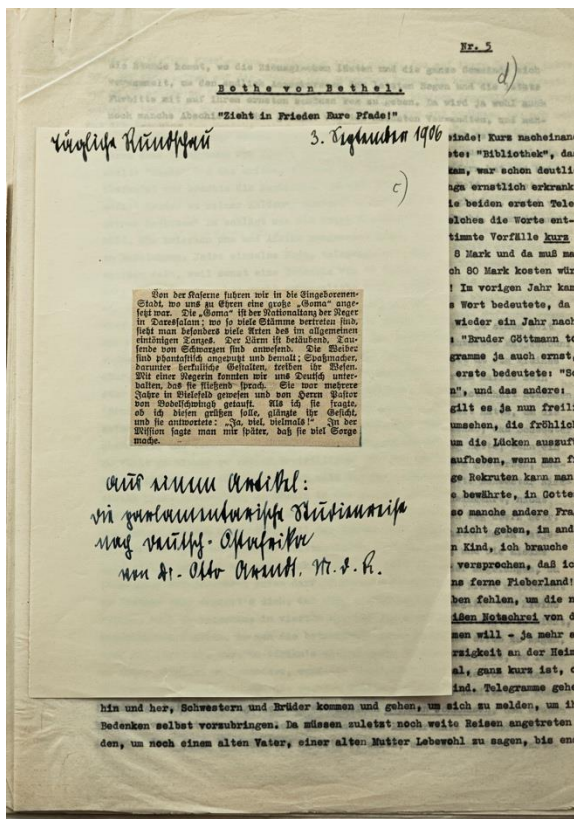 Nr. 5
d)
Bothe von Bethel.
"Zieht in Frieden Eure Pfade!"
Tägliche Rundschau
3. September 1906
c)
Von der Kaserne fuhren wir in die Eingeborenen-
Stadt, wo uns zu Ehren eine große „Goma“ ange-
setzt war. Die „Goma“ ist der Nationaltanz der Neger
in Daressalam; wo so viele Stämme vertreten sind,
sieht man besonders viele Arten des im allgemeinen
eintönigen Tanzes. Der Lärm ist betäubend, Tau-
sende von Schwarzen sind anwesend. Die Weiber
sind phantastisch angeputzt und bemalt; Spaßmacher,
darunter herkulische Gestalten, treiben ihr Wesen.
Mit einer Negerin konnten wir uns Deutsch unter-
halten, das sie fließend sprach. Sie war mehrere
Jahre in Bielefeld gewesen und von Herrn Pastor
von Bodelschwingh getauft. Als ich sie fragte,
ob ich diesen grüßen solle, glänzte ihr Gesicht,
und sie antwortete: „Ja, viel, vielmals!“ In der
Mission sagte man mir später, daß sie viel Sorge
mache.
aus einem Artikel:
die parlamentarische Studienreise
nach Deutsch-Ostafrika
von Dr. Otto Arendt, M. d. R.
einde! Kurz nacheinan
te: "Bibliothek", da
kam, war schon deutli
nga ernstlich erkrank
ie beiden ersten Tele
elches die Worte ent-
timmte Vorfälle kurz
8 Mark und da muß ma
ch 80 Mark kosten wür
! Im vorigen Jahr kam
s Wort bedeutete, da
wieder ein Jahr nach
: "Bruder Göttmann to
gramme ja auch ernst,
erste bedeutete: "Sc
n", und das andere:
gilt es ja nun freili
umsehen, die fröhlich
um die Lücken auszuf
aufheben, wenn man f
ge Rekruten kann man
e bewährte, in Gotte
so manche andere Fra
nicht geben, im and
n Kind, ich brauche
versprochen, daß ic
ns ferne Fieberland!
ben fehlen, um die n
ißen Notschrei von d
men will - ja mehr a
rzigkeit an der Heim
al, ganz kurz ist, d
ind. Telegramme gehe
hin und her, Schwestern und Brüder kommen und gehen, um sich zu melden, um ih
Bedenken selbst vorzubringen. Da müssen zuletzt noch weite Reisen angetreten
den, um noch einem alten Vater, einer alten Mutter Lebewohl zu sagen, bis end